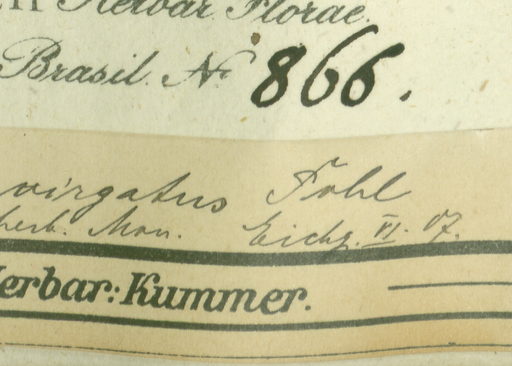 Herbar. Florae
Brasil. No 866.
virgatus Pohl
herb. Mon. Eichl. VI. 07.
Herbar: Kummer.